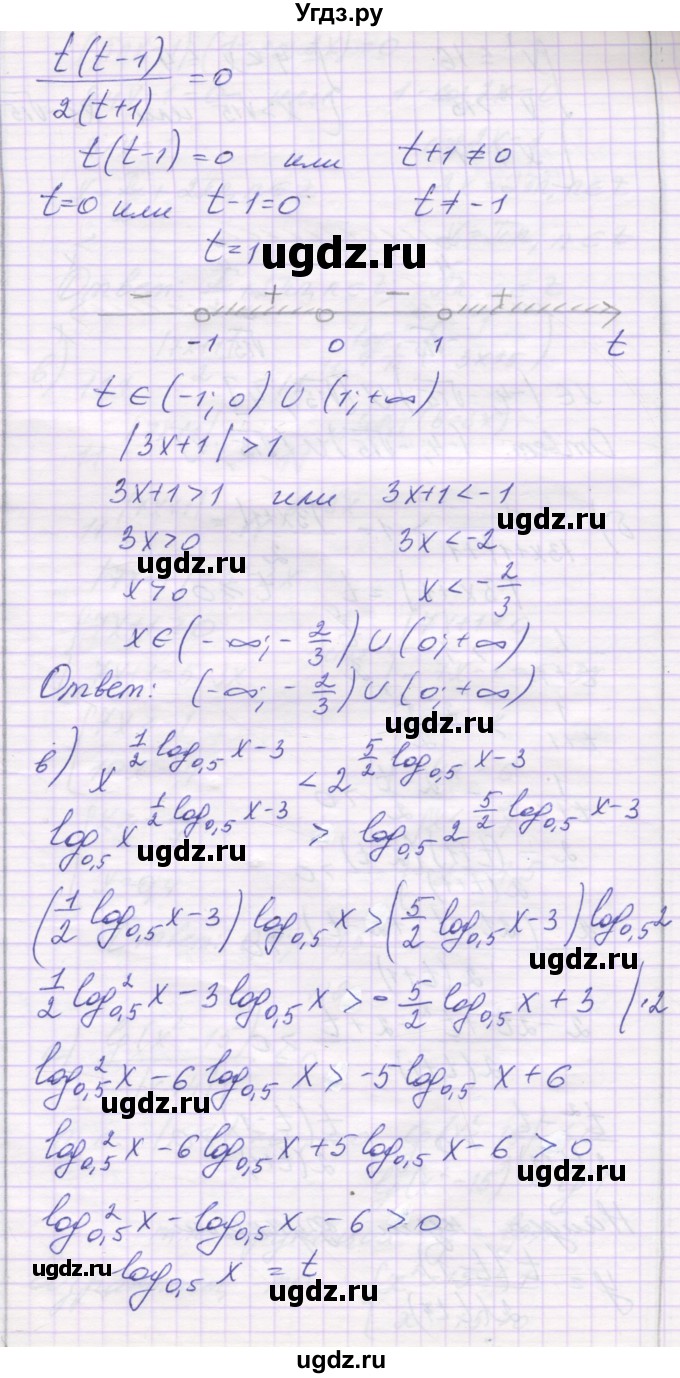 Угдз.ру
t(t-1)/2(t+1) = 0
t(t-1)=0 или t+1≠0
t=0 или t-1=0 t≠-1
t=1 ugdz.ru
- + - +
-1 0 1 t
t∈(-1; 0)∪(1; +∞)
|3x+1|>1
3x+1>1 или 3x+1<-1
ugdz.ru
3x>0 3x<-2
ugdz.ru
x>0 x<-2/3
x∈(-∞; -2/3)∪(0; +∞)
Ответ: (-∞; -2/3)∪(0; +∞)
ugdz.ru
в) x^(1/2 log_0,5 x-3) < 2^(5/2 log_0,5 x-3)
log_0,5 x^(1/2 log_0,5 x-3) > log_0,5 2^(5/2 log_0,5 x-3)
ugdz.ru
(1/2 log_0,5 x-3) log_0,5 x>(5/2 log_0,5 x-3) log_0,5 2
ugdz.ru
1/2 log²_0,5 x-3 log_0,5 x>-5/2 log_0,5 x+3 |·2
log²_0,5 x-6 log_0,5 x>-5 log_0,5 x+6
ugdz.ru
log²_0,5 x-6 log_0,5 x+5 log_0,5 x-6>0
ugdz.ru
log²_0,5 x-log_0,5 x-6>0
ugdz.ru log_0,5 x = t
ugdz.ru
ugdz.ru